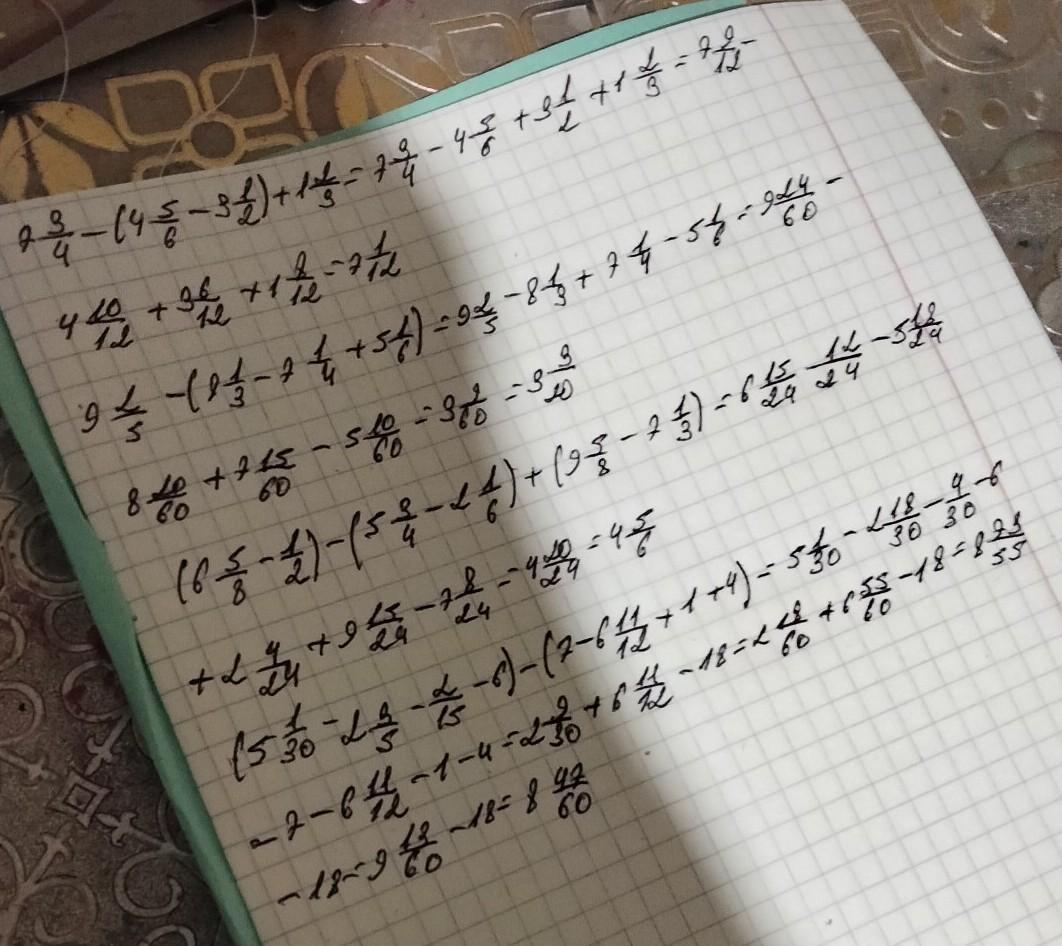 7 3/4 - (4 5/6 - 3 1/2) + 1 2/3 = 7 3/4 - 4 5/6 + 3 1/2 + 1 2/3 = 7 9/12 -
4 10/12 + 3 6/12 + 1 8/12 = 7 1/12
9 2/5 - (8 1/3 - 7 1/4 + 5 1/6) = 9 2/5 - 8 1/3 + 7 1/4 - 5 1/6 = 9 24/60 -
8 20/60 + 7 15/60 - 5 10/60 = 3 9/60 = 3 3/20
(6 5/8 - 1/2) - (5 3/4 - 2 1/6) + (9 5/8 - 7 1/3) = 6 15/24 - 12/24 - 5 18/24
+ 2 4/24 + 9 15/24 - 7 8/24 = 4 20/24 = 4 5/6
(5 1/30 - 2 3/5 - 2/15 - 6) - (7 - 6 11/12 + 1 + 4) = 5 1/30 - 2 18/30 - 4/30 - 6
- 7 - 6 11/12 - 1 - 4 = 2 9/30 + 6 11/12 - 18 = 2 18/60 + 6 55/60 - 18 = 8 73/55
- 18 = 9 13/60 - 18 = 8 47/60